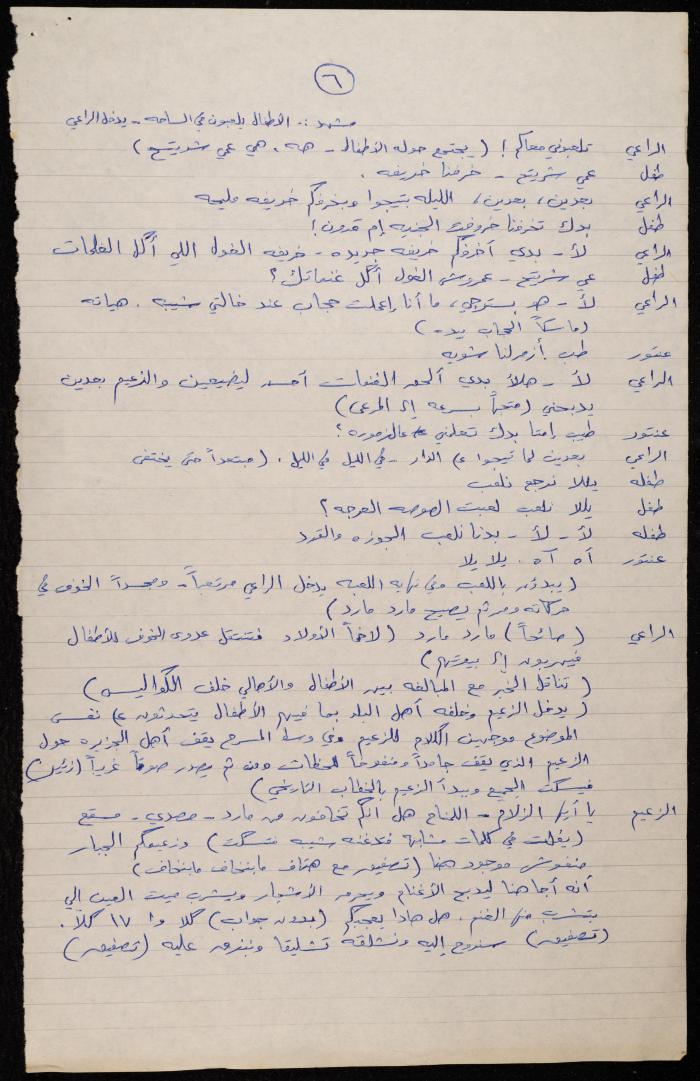 ٦
مشهد :. الأطفال يلعبون في الساحه - يدخل الراعي
الراعي تلعبوني معاكم ! ( يجتمع حوله الأطفال - هه . هي عمي شريتح )
طفل عمي شريتح - خرفنا خريفه .
الراعي بعدين ، بعدين ، الليله بتيجوا وبخرفكم خريفه مليحه
طفل بدك تخرفنا خروفة الجنيه إم قرون !
الراعي لأ - بدي أخرفكم خريفه جديده - خريفه الغول اللي أكل الغلمات
طفل عمي شريتح - عمروش الغول أكل غنماتك ؟
الراعي لأ - هو بسترجي ، ما أنا إعملت حجاب عند خالتي شيبه . هياته
( ماسكاً الحجاب بيده )
عنتور طب أزمرلنا شويه
الراعي لأ - هلأ بدي ألحق الغنمات أحسن ليضيعين والزعيم بعدين
يدبحني ( متجهاً بسرعه إلى المرعى )
عنتور طيب إمتا بدك تعلمني عالزموره ؟
الراعي بعدين لما تيجوا ع الدار - في الليل في الليل . ( مبتعداً حتى يختفي
طفله يللا نرجع نلعب
طفل يللا نلعب لعبت الصوصه العرجه ؟
طفله لأ - لأ - بدنا نلعب الجوزه والقرد
عنتور آه آه . يلا يلا
( يبدؤن باللعب وفي نهايه اللعبه يدخل الراعي مرتعباً - ومجسداً الخوف في
حركاته ومن ثم يصيح مارد مارد )
الراعي ( صائحاً ) مارد مارد ( لاخماً الأولاد فتنتقل عدوى الخوف للأطفال
فيهربون إلى بيوتهم )
( تناقل الخبر مع المبالغه بين الأطفال والأهالي خلف الكواليس )
( يدخل الزعيم وخلفه أهل البلد بما فيهم الأطفال يتحدثون ع نفس
الموضوع موجهين الكلام للزعيم وفي وسط المسرح يقف أهل الجزيره حول
الزعيم الذي يقف جامداً ومنفوخاً للحظات ومن ثم يصدر صوتاً غريباً ( زئير )
فيسكت الجميع ويبدأ الزعيم بالخطاب التاريخي )
الزعيم يا أيها الزلام - اللمناح هل أنكم تخافون من مارد - مصدي - مسقع
( يفلت في كلمات مشابهه فتدغنه شيبه فتسكت ) وزعيمكم الجبار
منفوش موجود هنا ( تصفيق مع هتاف مابنخاف مابنخاف )
أنه أجا هنا ليدبح الأغنام ويحرق الأشجار ويشرب ميت العين إلي
بتشرب منها الغنم . هل هادا يعجبكم ( بدون جواب ) كلا و ١٧ كلا .
( تصفيق ) سنروح إليه ونشلقه تشليقا ونبزق عليه ( تصفيق )